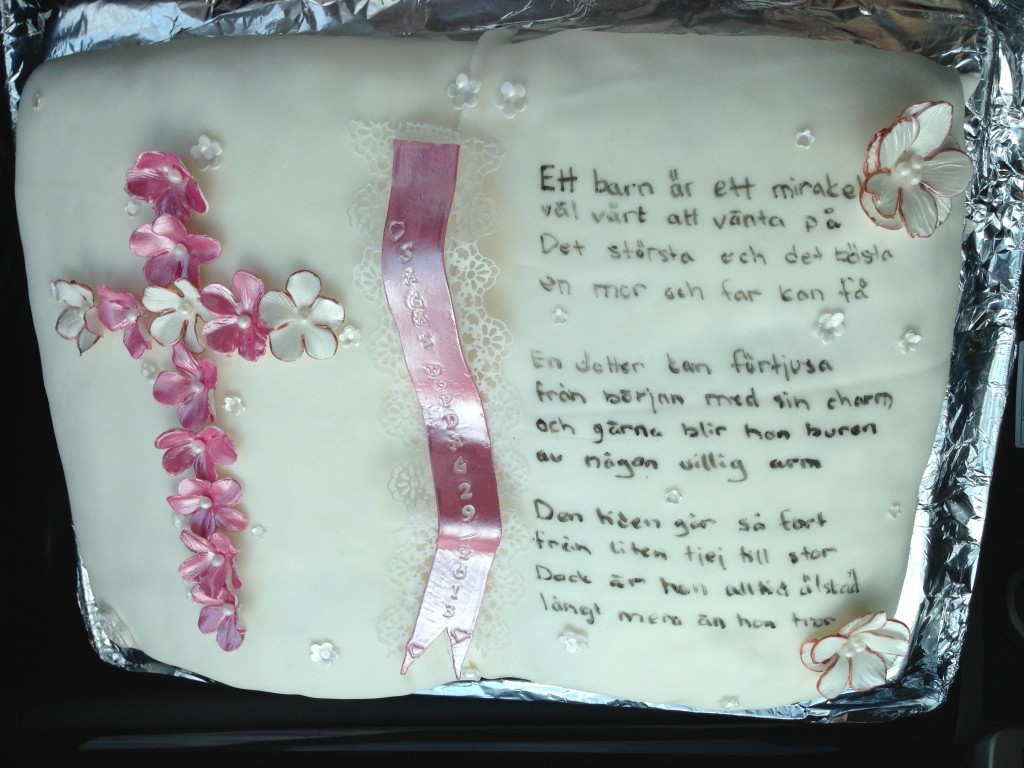 SAGAS DOPDAG 29/
Ett barn är ett mirakel
väl värt att vänta på
Det största och det bästa
en mor och far kan få
En dotter kan förtjusa
från början med sin charm
och gärna blir hon buren
av någon villig arm
Den tiden går så fort
från liten tjej till stor
Dock är hon alltid älskad
långt mera än hon tror